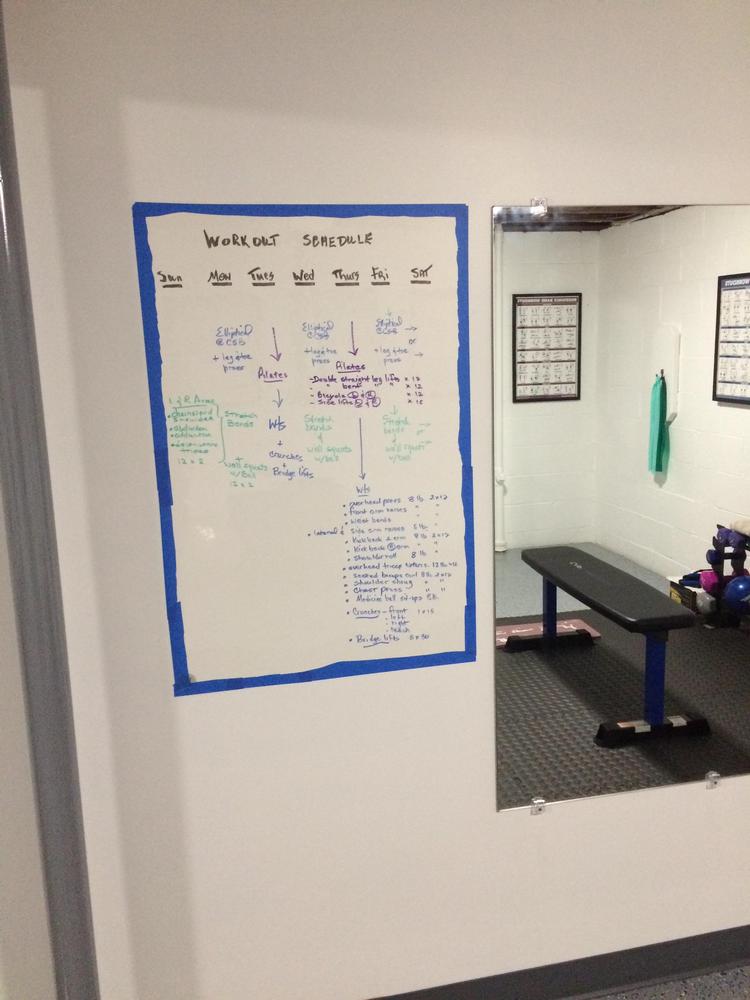 WORKOUT SCHEDULE
Sun Mon Tues Wed Thurs Fri SAT
Elliptical
@ CSB
+ leg + toe
press
Elliptical
@ CSB
+ leg + toe
press
Elliptical
@ CSB
+ leg + toe
press
or
Pilates
Pilates
- Double straight leg lifts x 12
- " bent " " x 12
- Bicycle L & R x 12
- Side lifts L & R x 12
L & R Arms
• abduction
• adduction
12 x 2
Stretch
Bands
+
Wall squats
w/Ball
12 x 2
Wts
+
Crunches
+
Bridge lifts
Stretch
bands
&
wall squats
w/ball
Stretch
bands
&
wall squats
w/ball
or
Wts
• overhead press 8 lb 2x12
• front arm raises " "
• waist bends
• lateral & side arm raises 5 lb "
• Kick back 2 arm 8 lb 2x12
• Kick back arm " "
• shoulder roll 8 lb "
• overhead tricep
• seated biceps curl 8 lb 2x12
• shoulder shrug " "
• Chest press " "
• Medicine ball sit-ups
• Crunches - front 1x15
- left
- right
• Bridge lifts